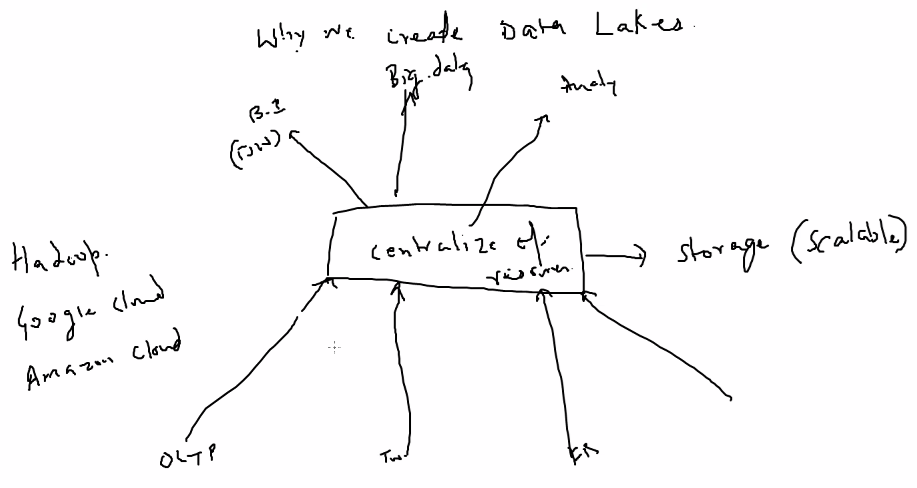 Why we create Data Lakes.
Big data
Analy
B.I
(row)
centralize of
Storage (Scalable)
Hadoop.
Google cloud
Amazon cloud
OLTP
Tw